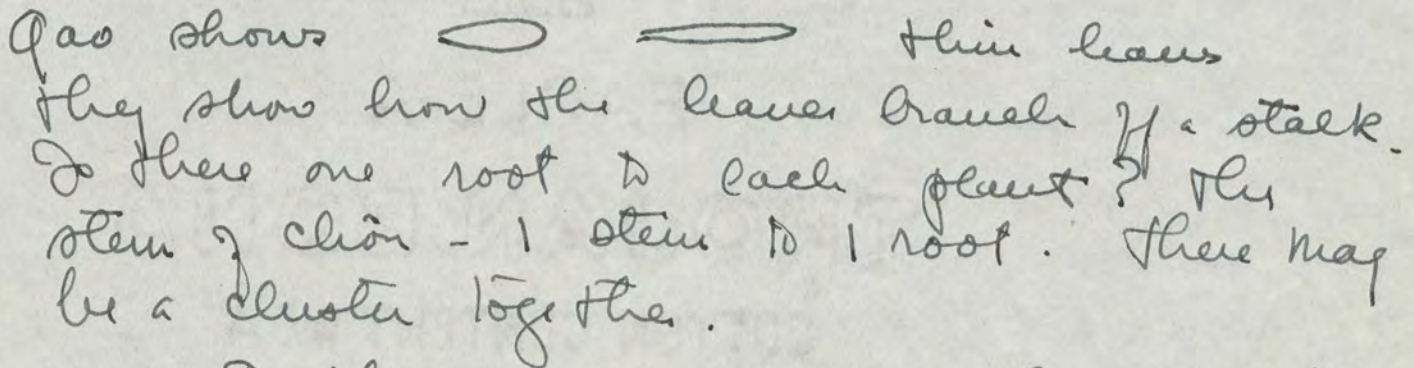 Qao shows thin leaves
they show how the leaves branch off a stalk.
Is there one root to each plant? The
stem of chõn - 1 stem to 1 root. There may
be a cluster together.